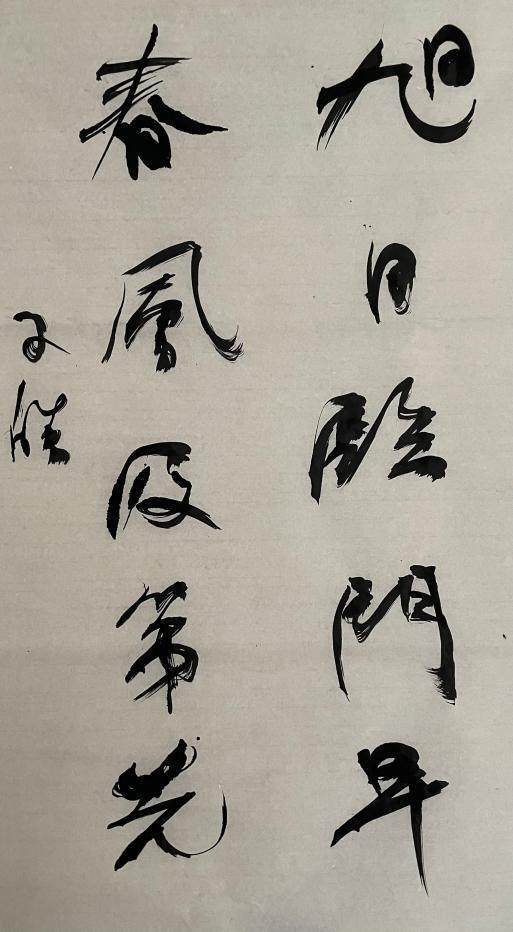 旭日臨門早
春風及第先